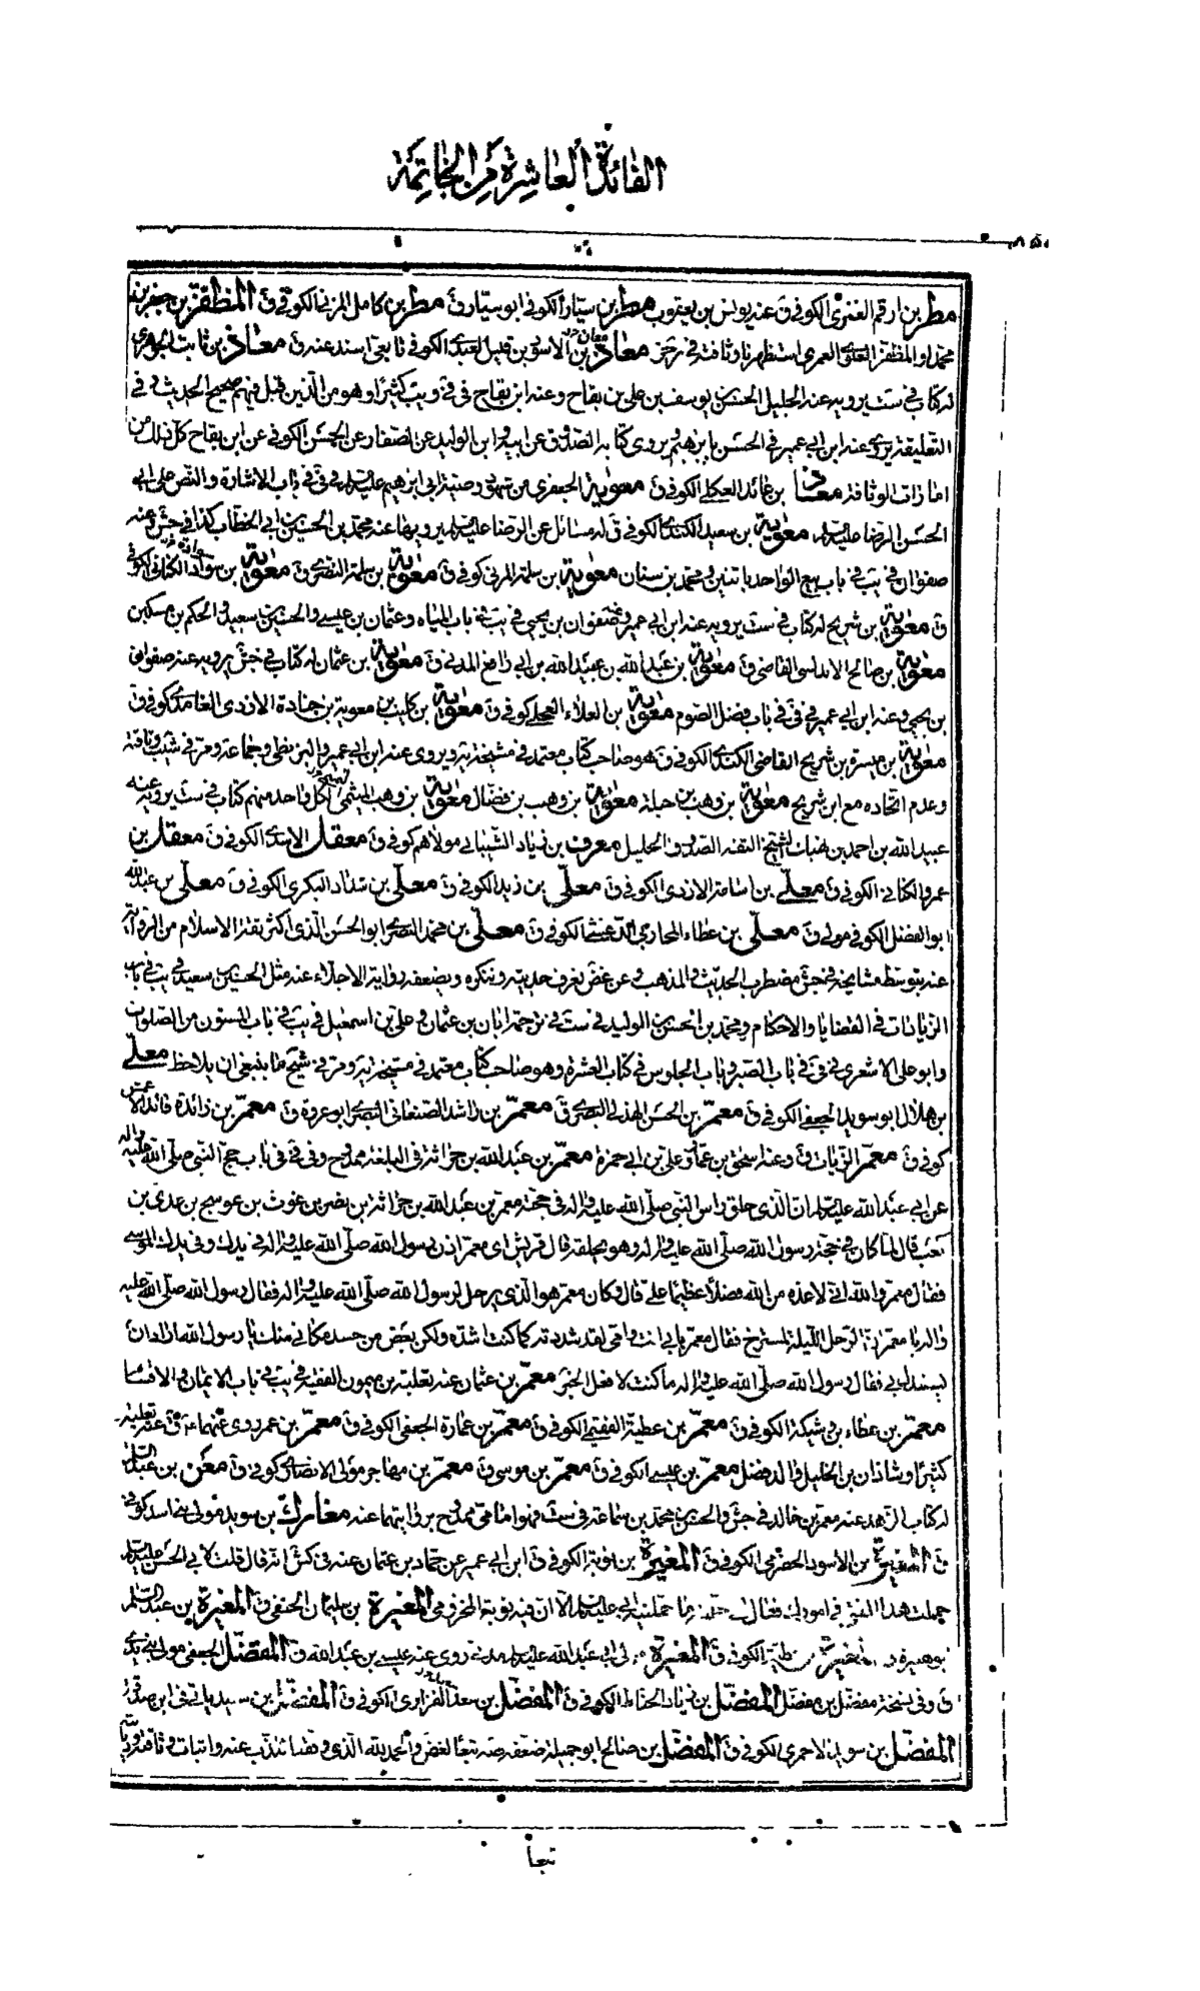 الفائدة العاشرة من الخاتمة
٨٥٠
مطر بن ارقم العنزى الكوفى ق عنه يونس بن يعقوب مطر بن سيار الكوفى ابو سيار ق مطر بن كامل المزنى الكوفى ق المظفر بن جعفر بن
محمد ابو المظفر العلوى العمرى استظهرنا وثاقته فى معاذ بن الاسود بن قيس العبدى الكوفى تابعى اسند عنه ق معاذ بن ثابت الجوهرى
له كتاب فى ست يرويه عنه الجليل الحسن بن يوسف بن على بن بقاح وعنه ابن بقاح فى فى و يب كثيرا وهو من الذين قيل فيهم صحيح الحديث و فى
التعليقة يروى عنه ابن ابى عمير فى الحسن بابرهيم ويروى كتابه الصدوق عن ابيه وابن الوليد عن الصفار عن الحسن الكوفى عن ابن بقاح كل ذلك من
امارات الوثاقة معاذ بن عائذ العكلى الكوفى ق معوية الجعفرى من شهود وصية ابى ابرهيم عليه السلم وفى فى فى باب الاشارة والنص على ابى
الحسن الرضا عليه السلم معوية بن سعيد الكندى الكوفى ق له مسائل عن الرضا عليه السلم يرويها عنه محمد بن الحسين بن ابى الخطاب كذا فى جش وعنه
صفوان فى يب فى باب بيع الواحد باثنين ومحمد بن سنان معوية بن سلمة المزنى كوفى ق معوية بن سلمة النضرى ق معوية بن سواد الكنانى الكوفى
ق معوية بن شريح له كتاب فى ست يرويه عنه ابن ابى عمير وعنه صفوان بن يحيى فى يب فى باب المياه وعثمان بن عيسى والحسين بن سعيد والحكم بن مسكين
معوية بن صالح الاندلسى القاضى ق معوية بن عبد الله بن عبيد الله بن ابى رافع المدنى ق معوية بن عثمان له كتاب فى جش يرويه عنه صفوان
بن يحيى وعنه ابن ابى عمير فى فى فى باب فضل الصوم معوية بن العلاء العجلى كوفى ق معوية بن كليب بن معوية بن جنادة الازدى الغامدى كوفى ق
معوية بن ميسرة بن شريح القاضى الكندى الكوفى ق هو صاحب كتاب معتمد فى مشيخة يه ويروى عنه ابن ابى عمير والبزنطى وجماعة ومر فى شيب وثاقته
وعدم اتحاده مع ابن شريح معوية بن وهب بن جبلة معوية بن وهب بن فضال معوية بن وهب الميثمى لكل واحد منهم كتاب فى ست يرويه عنه
عبيد الله بن احمد بن نهيك الشيخ الثقة الصدوق الجليل معرف بن زياد الشيبانى مولاهم كوفى ق معقل الاسدى الكوفى ق معقل بن
عمرو الكنانى الكوفى ق معلى بن اسامة الازدى الكوفى ق معلى بن زيد الكوفى ق معلى بن شداد البكرى الكوفى ق معلى بن عبد الله
ابو الفضل الكوفى مولى ق معلى بن عطاء المحاربى الكوفى ق معلى بن محمد البصرى ابو الحسن الذى اكثر ثقة الاسلام من الرواية
عنه بتوسط مشايخه فى جش مضطرب الحديث والمذهب وعن غض نعرف حديثه وننكره ويضعفه رواية الاجلاء عنه مثل الحسين بن سعيد فى يب فى باب
الزيادات فى القضايا والاحكام ومحمد بن الحسن بن الوليد فى ست فى ترجمة ابان بن عثمان وعلى بن اسمعيل فى يب فى باب المسنون من الصلوات
وابو على الاشعرى فى فى فى باب الصبر وباب الجلوس فى كتاب العشرة وهو صاحب كتاب معتمد فى مشيخة يه ومر فى شيح ما ينبغى ان يلاحظ معلى
بن هلال ابو سويد الجعفى الكوفى ق معمر بن الحسن الهذلى البصرى ق معمر بن راشد الصنعانى البصرى ابو عروة ق معمر بن زائدة قائد الاعمش
كوفى ق معمر الزيات ق وعنه اسحق بن عمار وعلى بن ابى حمزة معمر بن عبد الله بن حراثة فى البلغة ممدوح وفى فى فى باب حج النبى صلى الله عليه واله
عن ابى عبد الله عليه السلم ان الذى حلق راس النبى صلى الله عليه واله فى حجته معمر بن عبد الله بن حراثة بن نصر بن عوف بن عويج بن عدى بن
كعب قال لما كان فى حجة رسول الله صلى الله عليه واله وهو يحلقه قال قريش اى معمر اذن رسول الله صلى الله عليه واله فى يدك وفى يدك الموسى
فقال معمر والله انى لاعده من الله فضلا عظيما على قال وكان معمر هو الذى يرحل لرسول الله صلى الله عليه واله فقال رسول الله صلى الله عليه
واله يا معمر ان الرحل الليلة لمسترخ فقال معمر بابى انت وامى لقد شددته كما كنت اشده ولكن بعض من حسدنى مكانى منك يا رسول الله اراد ان
يستبدل بى فقال رسول الله صلى الله عليه واله ما كنت لافعل الخبر معمر بن عثمان عنه ثعلبة بن ميمون الفقيه فى يب فى باب الايمان والاقسام
معمر بن عطاء بن شيكة الكوفى ق معمر بن عطية الفقيمى الكوفى ق معمر بن عمارة الجعفى الكوفى ق معمر بن عمر روى عنهما ع ق عنه ثعلبة
كثيرا وشاذان بن الخليل والد فضل معمر بن عيسى الكوفى ق معمر بن موسى ق معمر بن مهاجر مولى الانصار كوفى ق معن بن عبد السلام
له كتاب الزهد عنه معمر بن خالد فى جش والحسن بن محمد بن سماعة فى ست فهو امامى ممدوح بروايتهما عنه مغارك بن سويد مولى بنى اسد كوفى
ق المغيرة بن الاسود الحضرمى الكوفى ق المغيرة بن توبة الكوفى ق ابن ابى عمير عن حماد بن عثمان عنه فى كش انه قال قلت لابى الحسن عليه السلم
حملت هذا الفتى فى امورك فقال حملنيه ابى عليه السلم الا ان فيه توبة المخزومى المغيرة بن سليمان الحنفى ق المغيرة بن عبد السلم
المغيرة بن عطية الكوفى ق المغيرة مولى ابى عبد الله عليه السلم مدنى روى عنه عيسى بن عبد الله ق المفضل الجعفى مولى بنى
ق وفى نسخة مفضل بن مفضل المفضل بن زياد الحناط الكوفى ق المفضل بن سعد الفزارى الكوفى ق المفضل بن سعيد ياتى فى ابن صدقة
المفضل بن سويد الاحمرى الكوفى ق المفضل بن صالح ابو جميلة ضعفه صه تبعا لغض والحمد لله الذى وفقنا للذب عنه واثبات وثاقته
تبعا